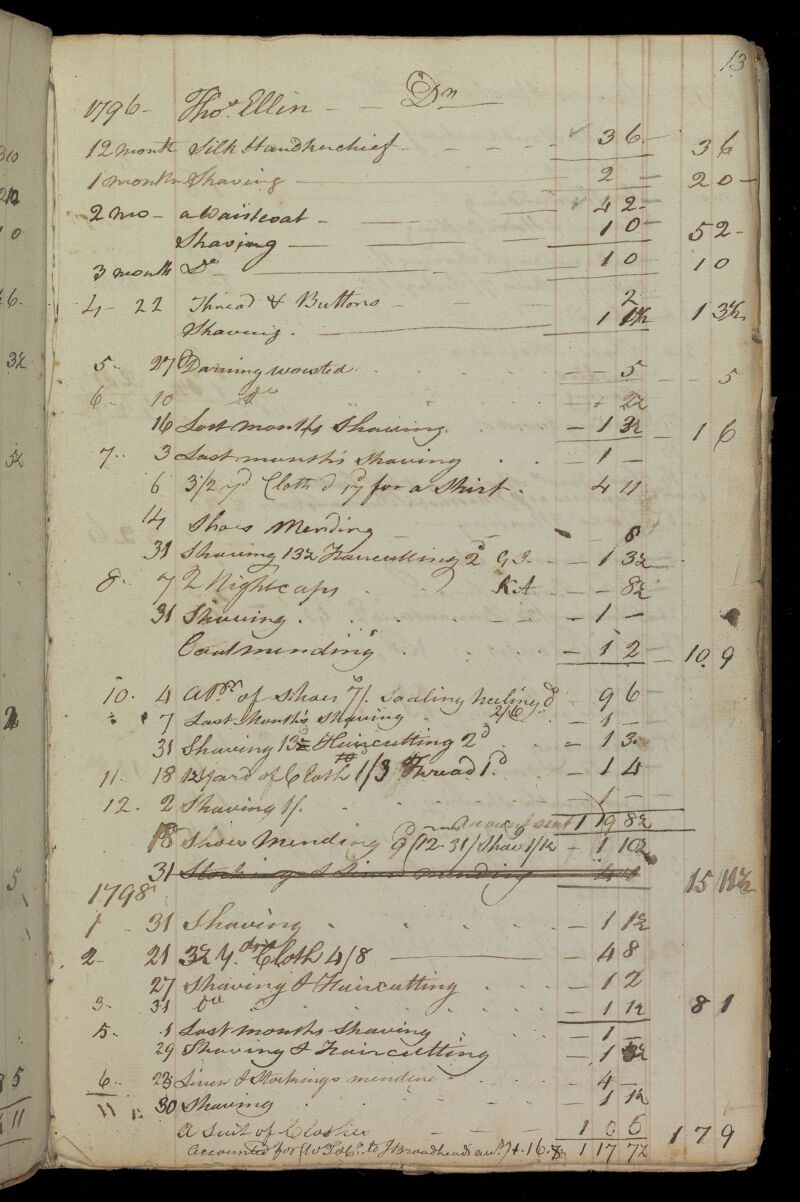 13
1796 - Thos. Ellin - - Dr
12 month Silk Handkerchief - - - - 3 6 - 3 6
1 month Shaving - 2 - 2 0 -
2 mo - a Waistcoat - 4 2 -
Shaving - 1 0 - 5 2 -
3 month Do - 1 0 1 0
4 - 22 Thread & Buttons - - - 2
Shaving. - 1 1½ 1 3½
5. 27 Darning worsted. - - 5 - 5
6 - 10 Do - - 2½
16 Last months Shaving. - 1 3½ - 1 6
7.. 3 Last month's Shaving . . - 1 -
6 3/2 yd Cloth d 17d for a Shirt. 4 11
14 Shoes Mending - - 8
31 Shaving 13½ Haircutting 2d G.I. - - 1 3½
8. 7 2 Nightcaps . . . KA - - - 8½
31 Shaving. . . . . - - - 1 -
Coat mending . . . - 1 2 - 10. 9
10. 4 A Pr. of Shoes 7/. Soaling heeling d 2/6 - 9 6
7 Last Month's Shaving - 1 -
31 Shaving 13½ Haircutting 2d . . - 1 3
11. 18 Yard of Cloth 1/3 Thread 1d. - 1 4
12. 2 Shaving 1/. . . . . - 1 -
account sent 1 19 8½
18 Shoes Mending 9d (12-31/Shav 1/1½ - 1 10½
31 Stockings & Linen mending 4 4 15 11½
1798
1 .. 31 Shaving . . . . . - 1 1½
2 - 21 3½ Yds Cloth 4/8 - - 4 8
27 Shaving & Haircutting . . - 1 2
3 - 31 Do . . . . - 1 1½ 8 1
5. 1 Last months Shaving . . . - 1 -
29 Shaving & Haircutting - 1 3½
6.. 23 Linen & Stockings mending . . . - 4 -
30 Shaving . . . . . - 1 1½
A Suit of Clothes - - - 1 0 6
Accounted for to J Broadhead 4.16.8 1 17 7½ 1 7 9